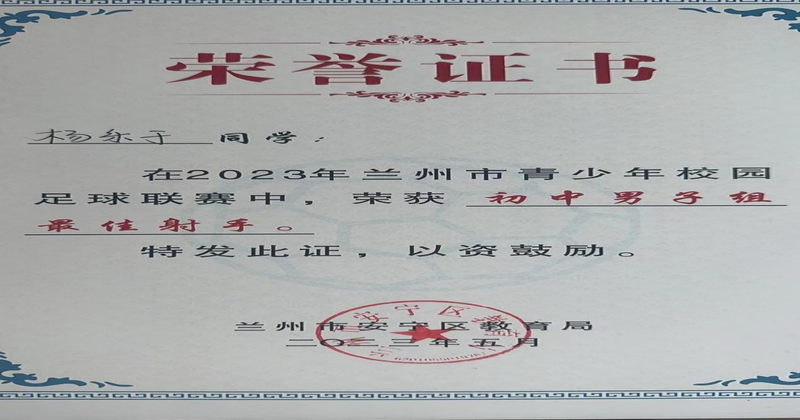 荣誉证书
杨东于 同学：
在2023年兰州市青少年校园
足球联赛中，荣获 初中男子组
最佳射手。
特发此证，以资鼓励。
兰州市安宁区教育局
二〇二三年五月